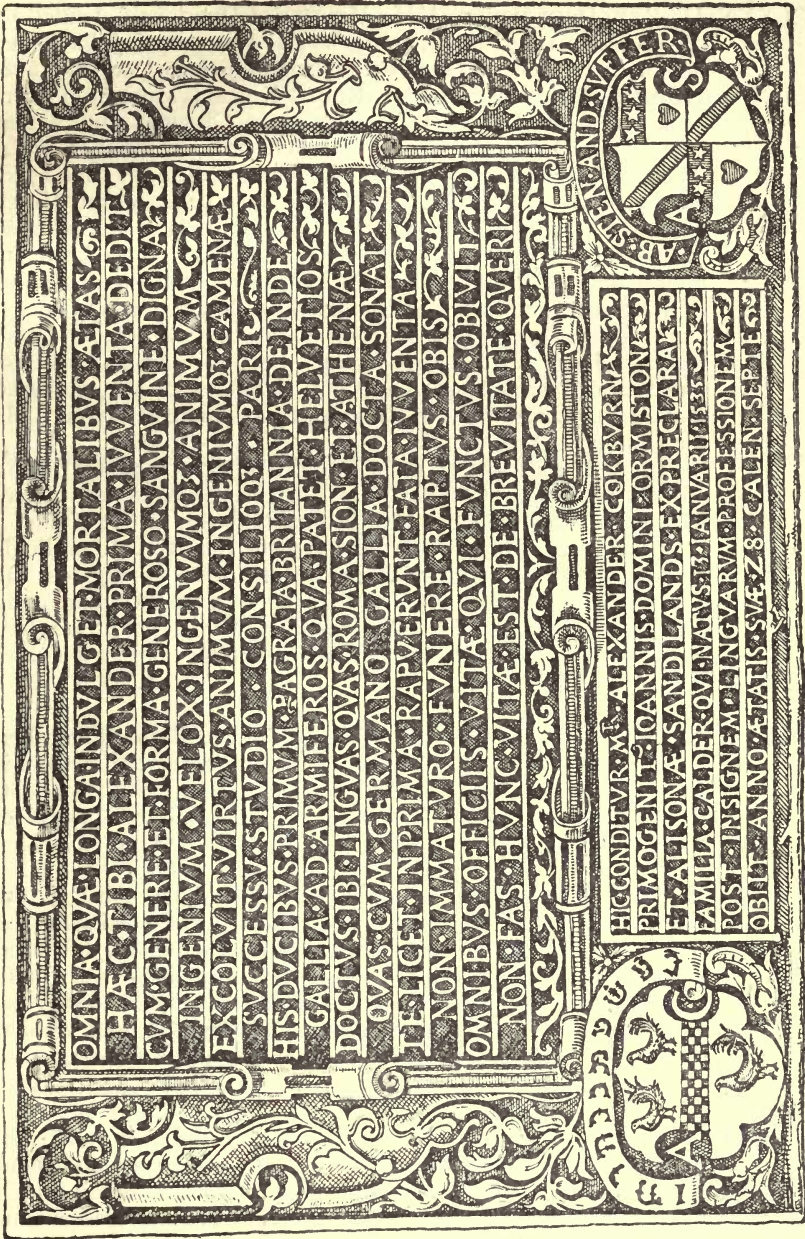 OMNIA·QVÆ·LONGA·INDVLGET·MORTALIBVS·ÆTAS
HÆC·TIBI·ALEXANDER·PRIMA·IVVENTA·DEDIT
CVM·GENERE·ET·FORMA·GENEROSO·SANGVINE·DIGNA
INGENIVM·VELOX·INGENVVMQ3·ANIMVM
EXCOLVIT·VIRTVS·ANIMVM·INGENIVMQ3·CAMENÆ
SVCCESSV·STVDIO·CONSILIOQ3·PARI
HIS·DVCIBVS·PRIMVM·PAGRATA·BRITANNIA·DEINDE
GALLIA·AD·ARMIFEROS·QVA·PATET·HELVETIOS
DOCTVS·IBI·LINGVAS·QVAS·ROMA·SION·ET·ATHENÆ
QVAS·CVM·GERMANO·GALLIA·DOCTA·SONAT
TE·LICET·IN·PRIMA·RAPVERVNT·FATA·IVVENTA
NON·IMMATVRO·FVNERE·RAPTVS·OBIS
OMNIBVS·OFFICIIS·VITÆ·QVI·FVNCTVS·OBIVIT
NON·FAS·HVNC·VITÆ·EST·DE·BREVITATE·QVERI
A C
HIC·CONDITVR·Mr·ALEXANDER·COKBVRN
PRIMOGENIT·IOANNIS·DOMINI·ORMISTON
ET·ALISONÆ·SANDILANDS·EX·PRECLARA
FAMILIA·CALDER·QVI·NATVS·13·IANVARII·1535
POST·INSIGNEM·LINGVARVM·PROFESSIONEM
OBIIT·ANNO·ÆTATIS·SVÆ·28·CALEN·SEPTE
AB·STEN·AND·SVFFER
A S